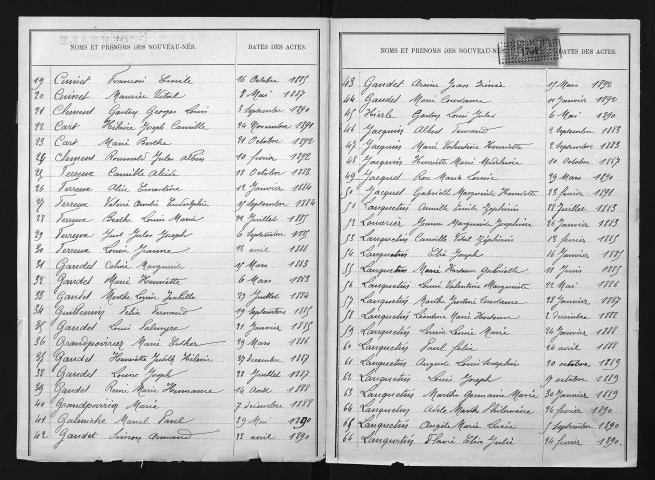 NOMS ET PRÉNOMS DES NOUVEAU-NÉS. DATES DES ACTES.
19 Cuinet François Emile 16 Octobre 1885
20 Cuinet Maurice Vital 8 Mai 1887
21 Clement Gaston Georges Louis 3 Septembre 1890
22 Cart Hilaire Joseph Camille 24 Novembre 1890
23 Cart Marie Berthe 21 Octobre 1892
24 Clement Jules Albin 10 février 1892
25 Terreux Camille 18 Octobre 1883
26 Terreux Ernestine 12 Janvier 1884
27 Terreux Valérie 1 Septembre 1884
28 Terreux Berthe Louise Maria Juillet 1885
29 Terreux Paul Jules Joseph 6 Septembre 1885
30 Terreux Louise Jeanne 13 avril 1886
31 Gaudet Celine Marguerite 15 Mars 1883
32 Gaudet Marie Henriette 6 Mars 1883
33 Gaudet Marthe Louise Isabelle 29 Juillet 1884
34 Guillemin Félix Fernand 19 Septembre 1885
35 Gaudet Louis 21 Janvier 1885
36 Grandpoirrier Marie Esther 29 Mars 1886
37 Gaudet Henriette Judith Hélène 27 décembre 1887
38 Gaudet Louise Joseph 28 Juillet 1887
39 Gaudet Remi Marie Hermance 14 Août 1888
40 Grandpoirrier Marie 7 décembre 1888
41 Galmiche Marcel Paul 29 Mai 1890
42 Gaudet Simon Armand 23 avril 1890
NOMS ET PRÉNOMS DES NOUVEAU-NÉS. DATES DES ACTES.
43 Gaudet Jean 15 Mars 1892
44 Gaudet Marie Constance 11 Janvier 1892
45 Hierle Gaston Louis Jules 6 Mai 1890
46 Jacquin Albert Fernand 2 Septembre 1883
47 Jacquin Marie Valentine Henriette 2 Septembre 1883
48 Jacquin Henriette Marie Madeleine 10 Octobre 1887
49 Jacquet Rose Marie Louise 29 Mars 1890
50 Jacquet Gabrielle Marguerite Henriette 23 février 1891
51 Languetin Camille Emile Zéphirin 28 Juillet 1883
52 Louvrier Jeanne Marguerite Joséphine 26 Janvier 1883
53 Languetin Camille Vital Zéphirin 12 février 1885
54 Languetin Elie Joseph 16 Janvier 1885
55 Languetin Marie Gabrielle 11 Juin 1885
56 Languetin Louise Valentine Marguerite 22 Mai 1886
57 Languetin Marthe Justine Constance 28 Janvier 1887
58 Languetin Marie 2 décembre 1888
59 Languetin Louise Marie 24 Janvier 1888
60 Languetin Paul Félix 24 avril 1888
61 Languetin Auguste Louis 20 octobre 1889
62 Languetin Louis Joseph 9 octobre 1889
63 Languetin Marthe Germaine Marie 30 Janvier 1889
64 Languetin Adèle Marthe Philomène 26 février 1890
65 Languetin Angèle Marie Lucie 5 Septembre 1890
66 Languetin Flavie Elise Julie 24 février 1890